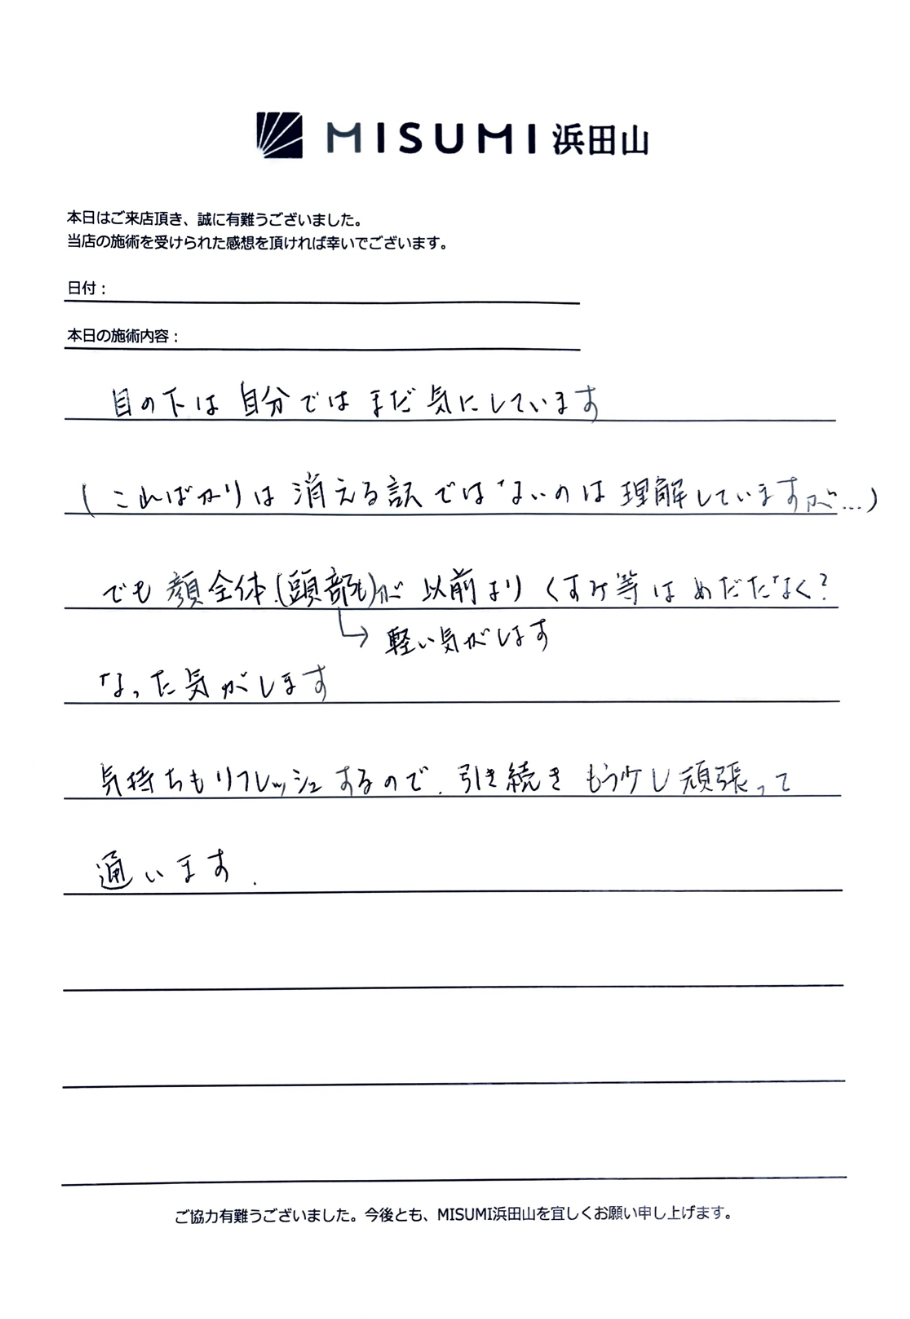 MISUMI浜田山
本日はご来店頂き、誠に有難うございました。
当店の施術を受けられた感想を頂ければ幸いでございます。
日付：
本日の施術内容：
目の下は 自分では まだ 気にしています
(こればかりは 消える訳ではないのは 理解していますが…)
でも 顔全体(頭部も)が 以前より くすみ等は めだたなく?
→ 軽い気がします
なった気がします
気持ちもリフレッシュするので、引き続き もう少し 頑張って
通います.
ご協力有難うございました。今後とも、MISUMI浜田山を宜しくお願い申し上げます。